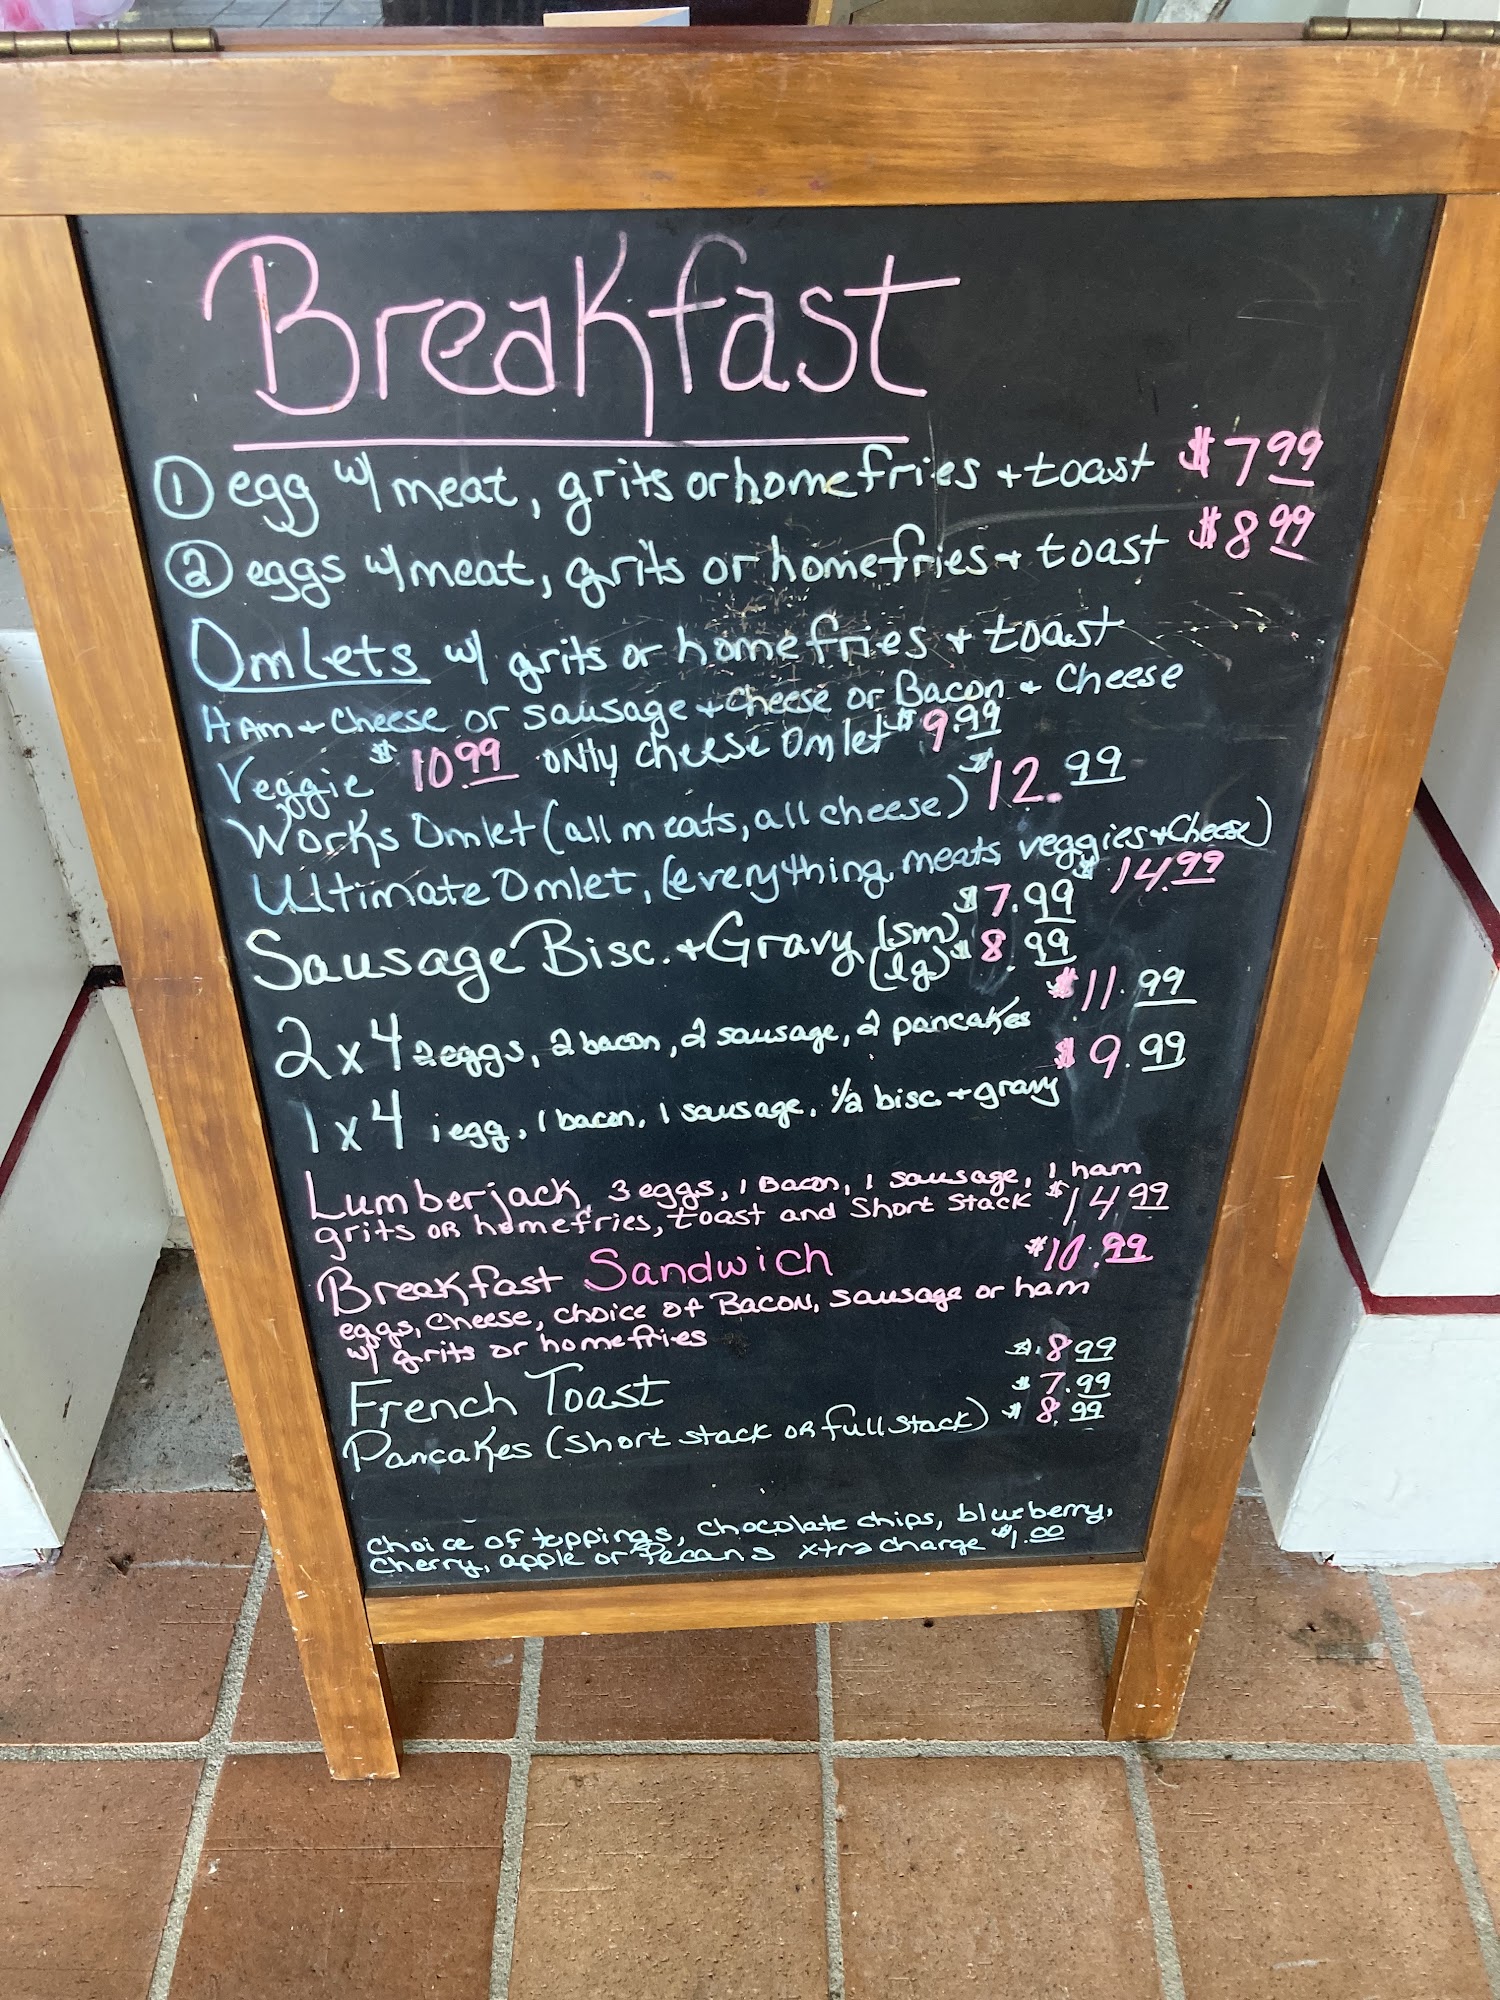 Breakfast
① egg w/ meat, grits or homefries + toast $7.99
② eggs w/ meat, grits or homefries + toast $8.99
Omlets w/ grits or homefries + toast
Ham + Cheese or sausage + cheese or Bacon + Cheese
Veggie $10.99 only cheese Omlet $9.99
Works Omlet (all meats, all cheese) $12.99
Ultimate Omlet, (everything, meats veggies + Cheese) $14.99
Sausage Bisc. + Gravy (sm) $7.99
(lg) $8.99
2 x 4 2 eggs, 2 bacon, 2 sausage, 2 pancakes $11.99
1 x 4 1 egg, 1 bacon, 1 sausage, 1/2 bisc + gravy $9.99
Lumberjack 3 eggs, 1 Bacon, 1 sausage, 1 ham
grits or homefries, toast and Short Stack $14.99
Breakfast Sandwich $10.99
eggs, cheese, choice of Bacon, sausage or ham
w/ grits or homefries
French Toast $8.99
Pancakes (short stack or full stack) $7.99
$8.99
choice of toppings, chocolate chips, blueberry,
cherry, apple or Pecans xtra charge $1.00